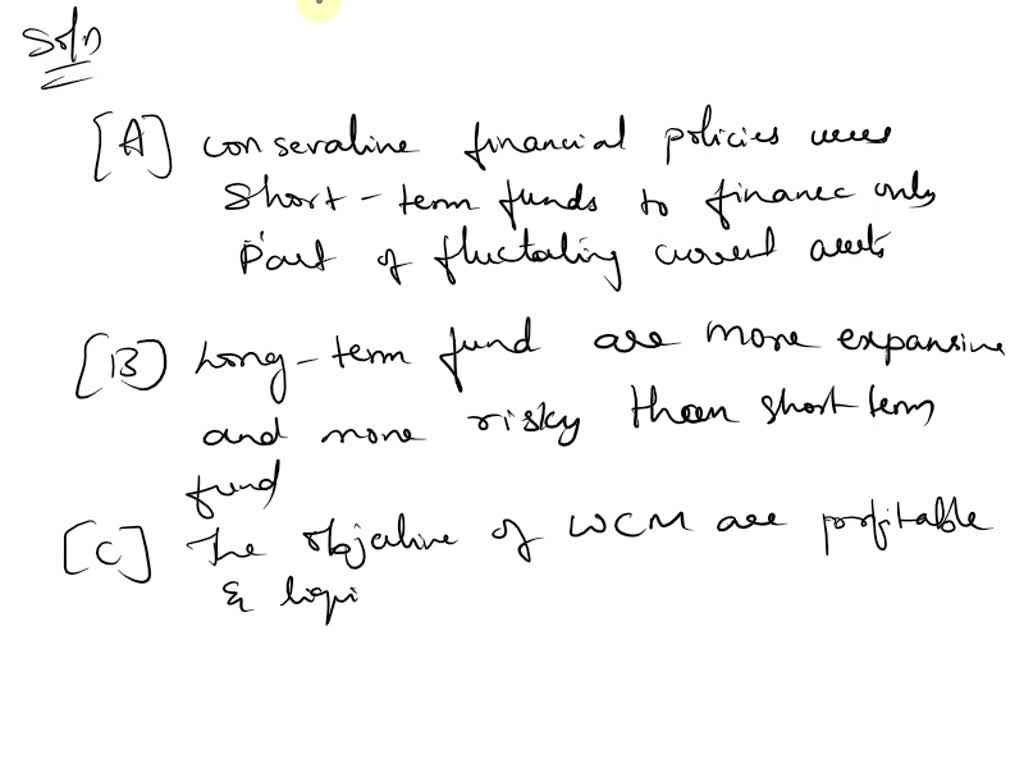 Soln
[A] conservaline financial policies uses
Short-term funds to finance only
Part of fluctating current assets
[B] Long-term fund are more expansive
and more risky than short term
fund
[C] The objective of WCM are profitable
& liqui